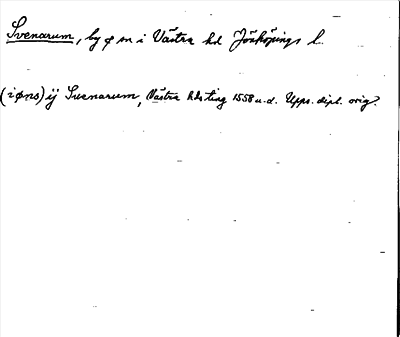 Svenarum, by o sn i Västra hd Jönköpings l.
(i øns) ij Suenarum, Västra hds ting 1558 u.d. Upps. dipl. orig.